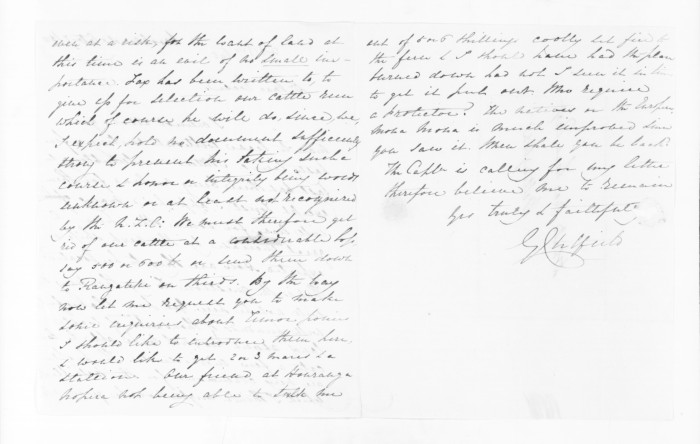 men at a risk, for the want of land at
this time is an evil of no small im-
portance. Fox has been written to, to
give up for selection our cattle run
which of course he will do, since we,
I expect, hold no document sufficiently
strong to prevent his taking such a
course & honor or integrity being words
unknown or at least not recognized
by the N.Z.C: We must therefore get
rid of our cattle at a considerable loss,
say 500 or 600£ or send them down
to Rangatiki on thirds. By the bay
now let me request you to make
some enquiries about Timor ponies
I should like to introduce them here
& would like to get 2 or 3 mares & a
stallion. Our friend at
not being able to me
out of 5 or 6 shillings cooly set fire to
the fern & I should have had the place
burned down had not I seen it in time
to get it put out. Who require
a protector? The natives on the
is much improved since
you saw it. When shall you be back?
The Captn is calling for my letter
therefore believe me to remain
Yrs truly & faithfully